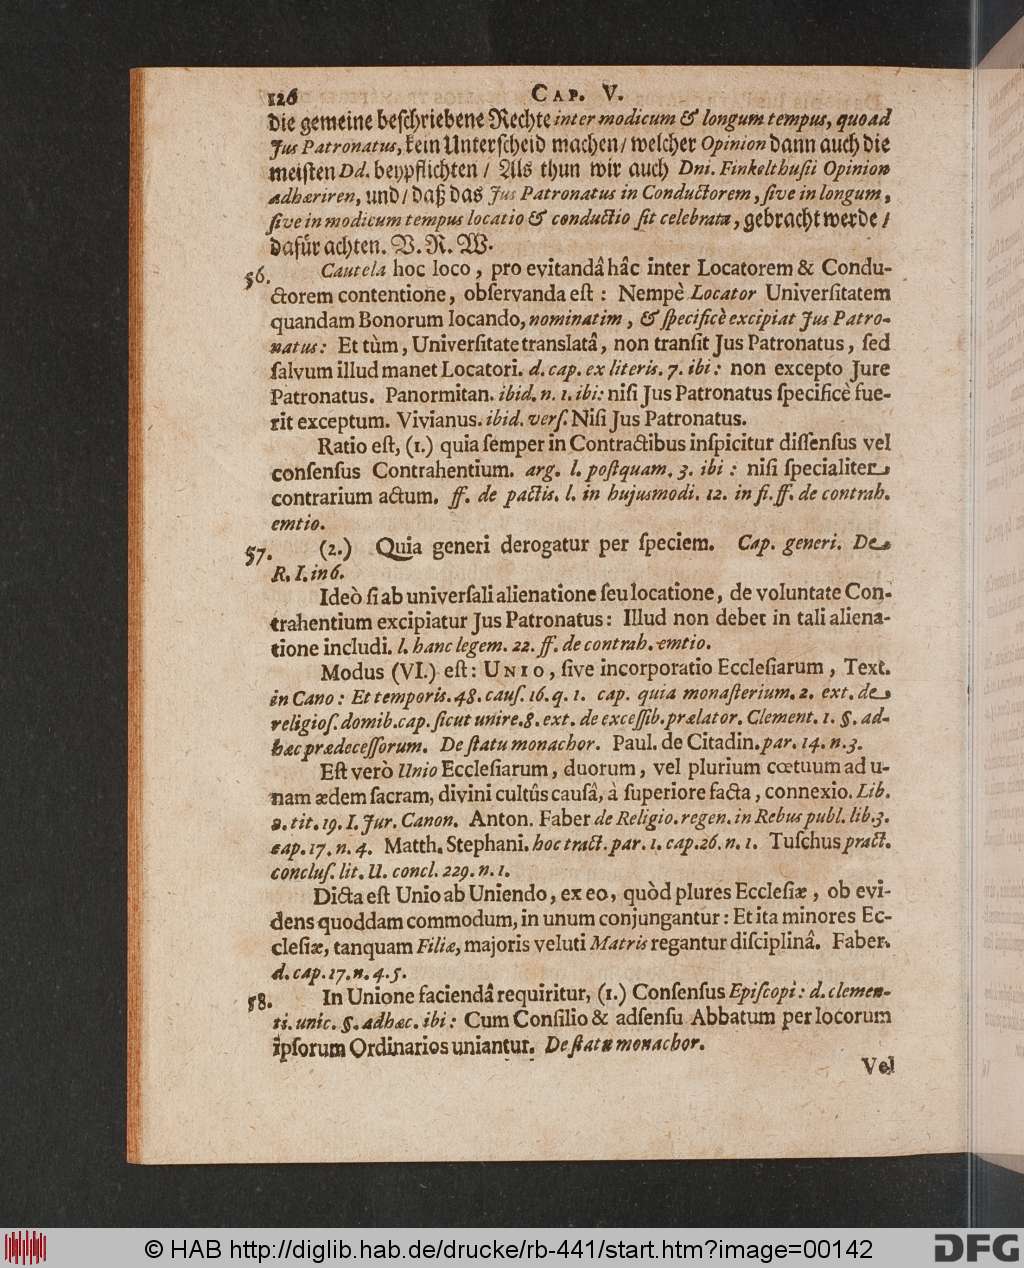 126 CAP. V.
die gemeine beſchriebene Rechte inter modicum & longum tempus, quoad
Jus Patronatus, kein Unterſcheid machen/ welcher Opinion dann auch die
meiſten Dd. beypflichten / Als thun wir auch Dni. Finkelthuſii Opinion
adhæriren, und/ daß das Jus Patronatus in Conductorem, ſive in longum,
ſive in modicum tempus locatio & conductio ſit celebrata, gebracht werde /
dafür achten. V. R. W.
56. Cautela hoc loco, pro evitandâ hâc inter Locatorem & Condu-
ctorem contentione, obſervanda eſt : Nempè Locator Univerſitatem
quandam Bonorum locando, nominatim, & ſpecificè excipiat Jus Patro-
natus: Et tùm, Univerſitate translatâ, non tranſit Jus Patronatus, ſed
ſalvum illud manet Locatori. d. cap. ex literis. 7. ibi: non excepto Jure
Patronatus. Panormitan. ibid. n. 1. ibi: niſi Jus Patronatus ſpecificè fue-
rit exceptum. Vivianus. ibid. verſ. Niſi Jus Patronatus.
Ratio eſt, (1.) quia ſemper in Contractibus inſpicitur diſſenſus vel
conſenſus Contrahentium. arg. l. poſtquam. 3. ibi : niſi ſpecialiter
contrarium actum. ff. de pactis. l. in hujusmodi. 12. in fi. ff. de contrah.
emtio.
57. (2.) Quia generi derogatur per ſpeciem. Cap. generi. De
R. I. in 6.
Ideò ſi ab univerſali alienatione ſeu locatione, de voluntate Con-
trahentium excipiatur Jus Patronatus: Illud non debet in tali aliena-
tione includi. l. hanc legem. 22. ff. de contrah. emtio.
Modus (VI.) eſt: UNIO, ſive incorporatio Eccleſiarum, Text.
in Cano: Et temporis. 48. cauſ. 16. q. 1. cap. quia monaſterium. 2. ext. de
religioſ. domib. cap. ſicut unire. 8. ext. de exceſſib. prælator. Clement. 1. §. ad-
hæc prædeceſſorum. De ſtatu monachor. Paul. de Citadin. par. 14. n. 3.
Eſt verò Unio Eccleſiarum, duorum, vel plurium cœtuum ad u-
nam ædem ſacram, divini cultûs cauſâ, à ſuperiore facta, connexio. Lib.
2. tit. 19. I. Jur. Canon. Anton. Faber de Religio. regen. in Rebus publ. lib. 3.
cap. 17. n. 4. Matth. Stephani. hoc tract. par. 1. cap. 26. n. 1. Tuſchus pract.
concluſ. lit. U. concl. 229. n. 1.
Dicta eſt Unio ab Uniendo, ex eo, quòd plures Eccleſiæ, ob evi-
dens quoddam commodum, in unum conjungantur: Et ita minores Ec-
cleſiæ, tanquam Filiæ, majoris veluti Matris regantur diſciplinâ. Faber.
d. cap. 17. n. 4. 5.
58. In Unione faciendâ requiritur, (1.) Conſenſus Epiſcopi: d. clemen-
ti. unic. §. adhæc. ibi: Cum Conſilio & adſenſu Abbatum per locorum
ipſorum Ordinarios uniantur. De ſtatu monachor.
Vel
© HAB http://diglib.hab.de/drucke/rb-441/start.htm?image=00142
DFG